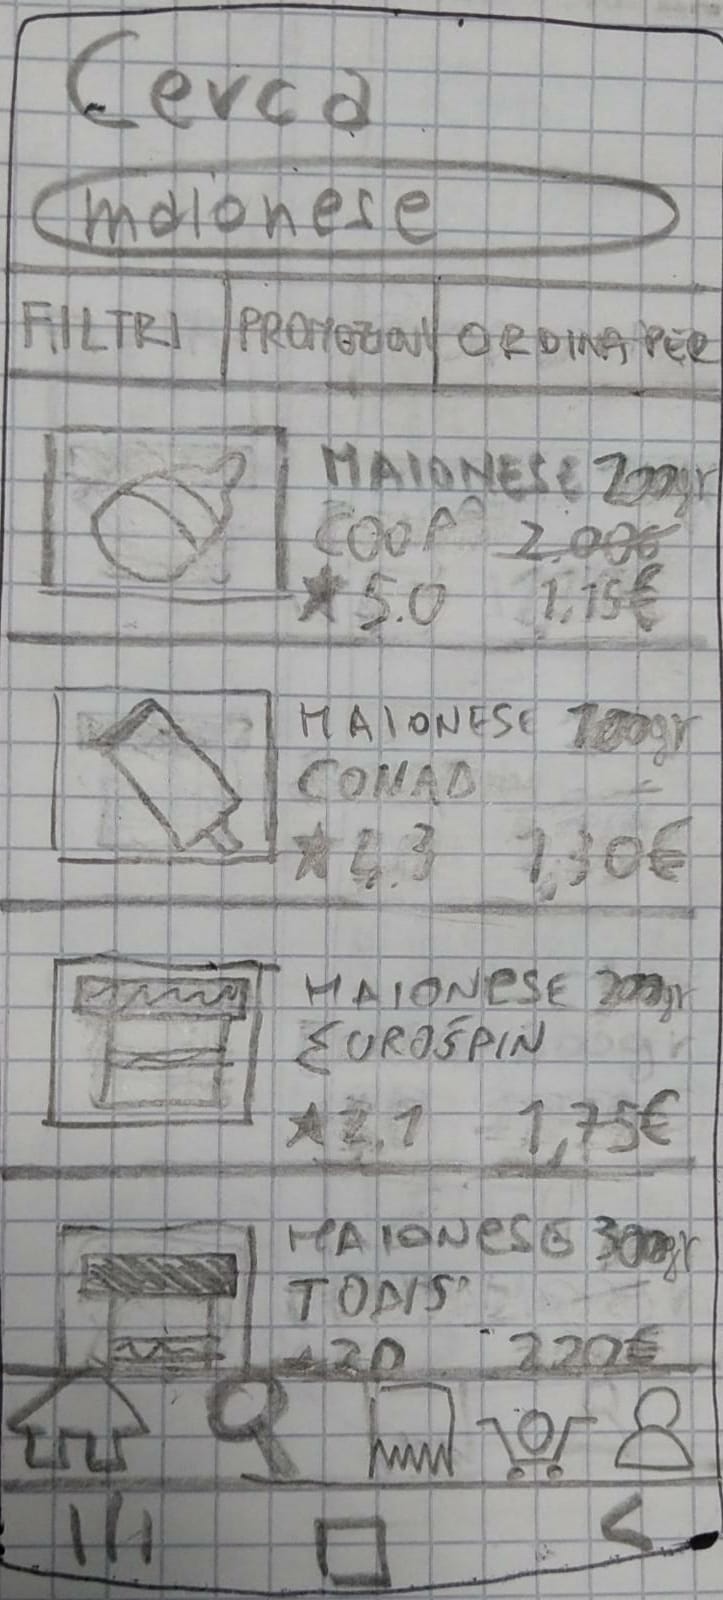 Cerca
maionese
FILTRI PROMOZIONI ORDINA PER
MAIONESE 200gr
COOP 2.00€
★ 5.0 1,15€
MAIONESE 100gr
CONAD
★ 4.3 1,30€
MAIONESE 200gr
EUROSPIN
★ 2.1 1,75€
MAIONESE 300gr
TODIS
★ 2.0 2.20€